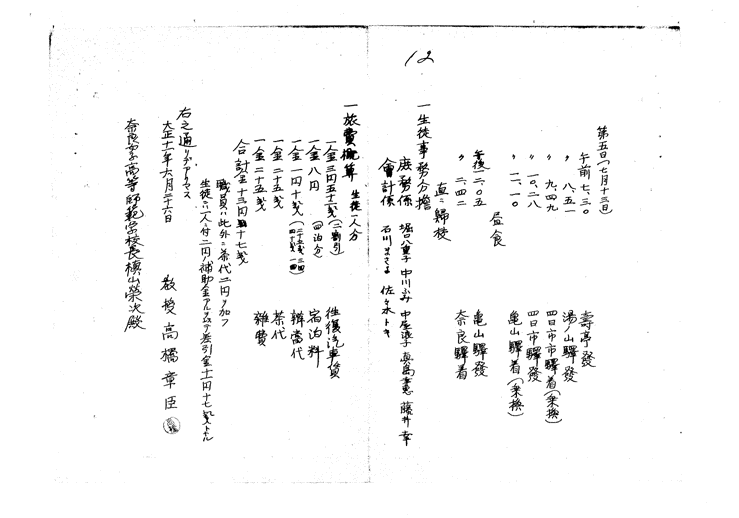 12
第五日(七月十三日)
午前七、三〇 壽亭發
〃 八、五一 湯ノ山驛發
〃 九、四九 四日市市驛着(乗換)
〃 一〇、二八 四日市驛發
〃 一一、一〇 亀山驛着(乗換)
昼食
午後一二、〇五 亀山驛發
〃 二、四二 奈良驛着
直ニ歸校
一生徒事務分擔
庶務係 堀口八重子 中川ふみ 中屋 眞島 藤井幸
會計係 石川まさる 佐々木トキ
一旅費概算 生徒一人分
一金三円五十二銭(二割引) 往復汽車賃
一金八円 四泊分 宿泊料
一金一円十銭 辨當代
一金二十五銭 茶代
一金二十五銭 雑費
合計金十三円十七銭
職員ハ此外ニ茶代二円ヲ加フ
生徒ニハ一人ニ付二円ノ補助金アルヲ以テ差引金十一円十七銭トナル
右之通リニアリマス
大正十一年六月二十六日
教授 高橋章臣
奈良女子高等師範学校長槇山榮次殿